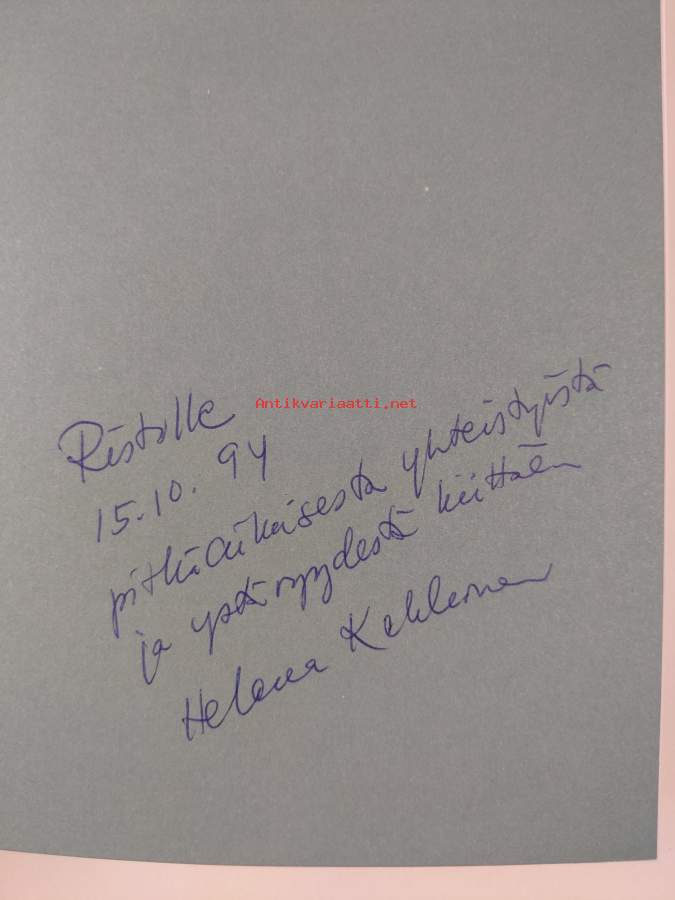 Ristolle
Antikvariaatti.net
15.10.94
pitkäaikaisesta yhteistyöstä
ja ystävyydestä kiittäen
Helena